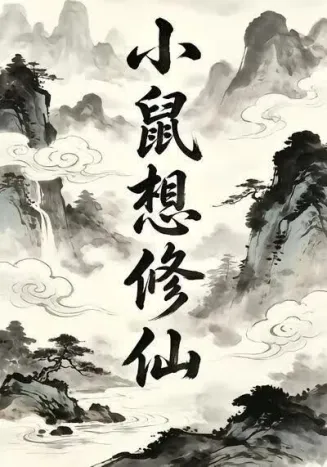 小鼠想修仙